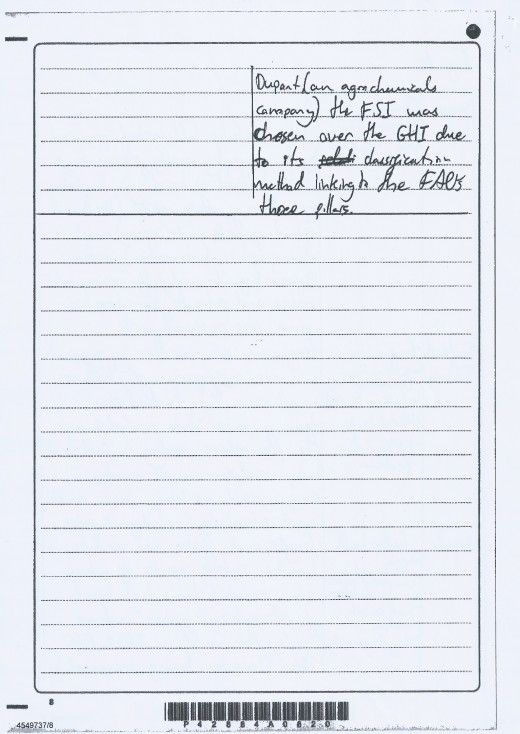 Dupont (an agrochemicals
company) the FSI was
chosen over the GHI due
to its classification
method linking to the FAO's
three pillars.
8
4549737/8
P42884A0820